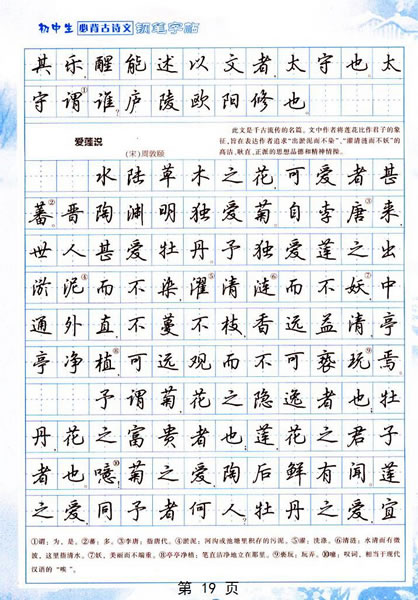 初中生 必背古诗文 钢笔字帖
其乐,醒能述以文者,太守也。太
守谓①谁?庐陵欧阳修也。
爱莲说
(宋)周敦颐
此文是千古流传的名篇。文中作者将莲花比作君子的象
征,旨在表达作者追求“出淤泥而不染”、“濯清涟而不妖”的
高洁、耿直、正派的思想品德和精神情操。
水陆草木之花,可爱者甚
蕃②。晋陶渊明独爱菊。自李唐③来,
世人甚爱牡丹。予独爱莲之出
淤泥④而不染,濯⑤清涟⑥而不妖⑦,中
通外直,不蔓不枝,香远益清,亭
亭净植⑧,可远观而不可亵玩⑨焉。
予谓菊,花之隐逸者也;牡
丹,花之富贵者也;莲,花之君子
者也。噫⑩!菊之爱,陶后鲜有闻。莲
之爱,同予者何人?牡丹之爱,宜
①谓:为,是。②蕃:多。③李唐:指唐代。④淤泥:河沟或池塘里积存的污泥。⑤濯:洗涤。⑥清涟:水清而有微
波,这里指清水。⑦妖:美丽而不端重。⑧亭亭净植:笔直洁净地立在那里。⑨亵玩:玩弄。⑩噫:叹词,相当于现代
汉语的“唉”。
第 19 页